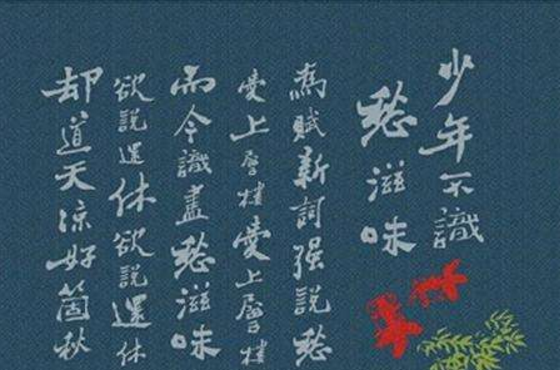 少年不識
愁滋味
為賦新詞强説愁
愛上層樓愛上層樓
而今識盡愁滋味
欲説還休欲説還休
却道天涼好箇秋